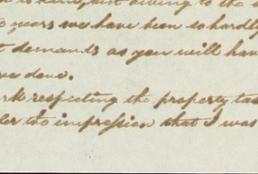 owing to the
years we have been so hardly
demands as you will have
done.
respecting the property tax
the impression that I was